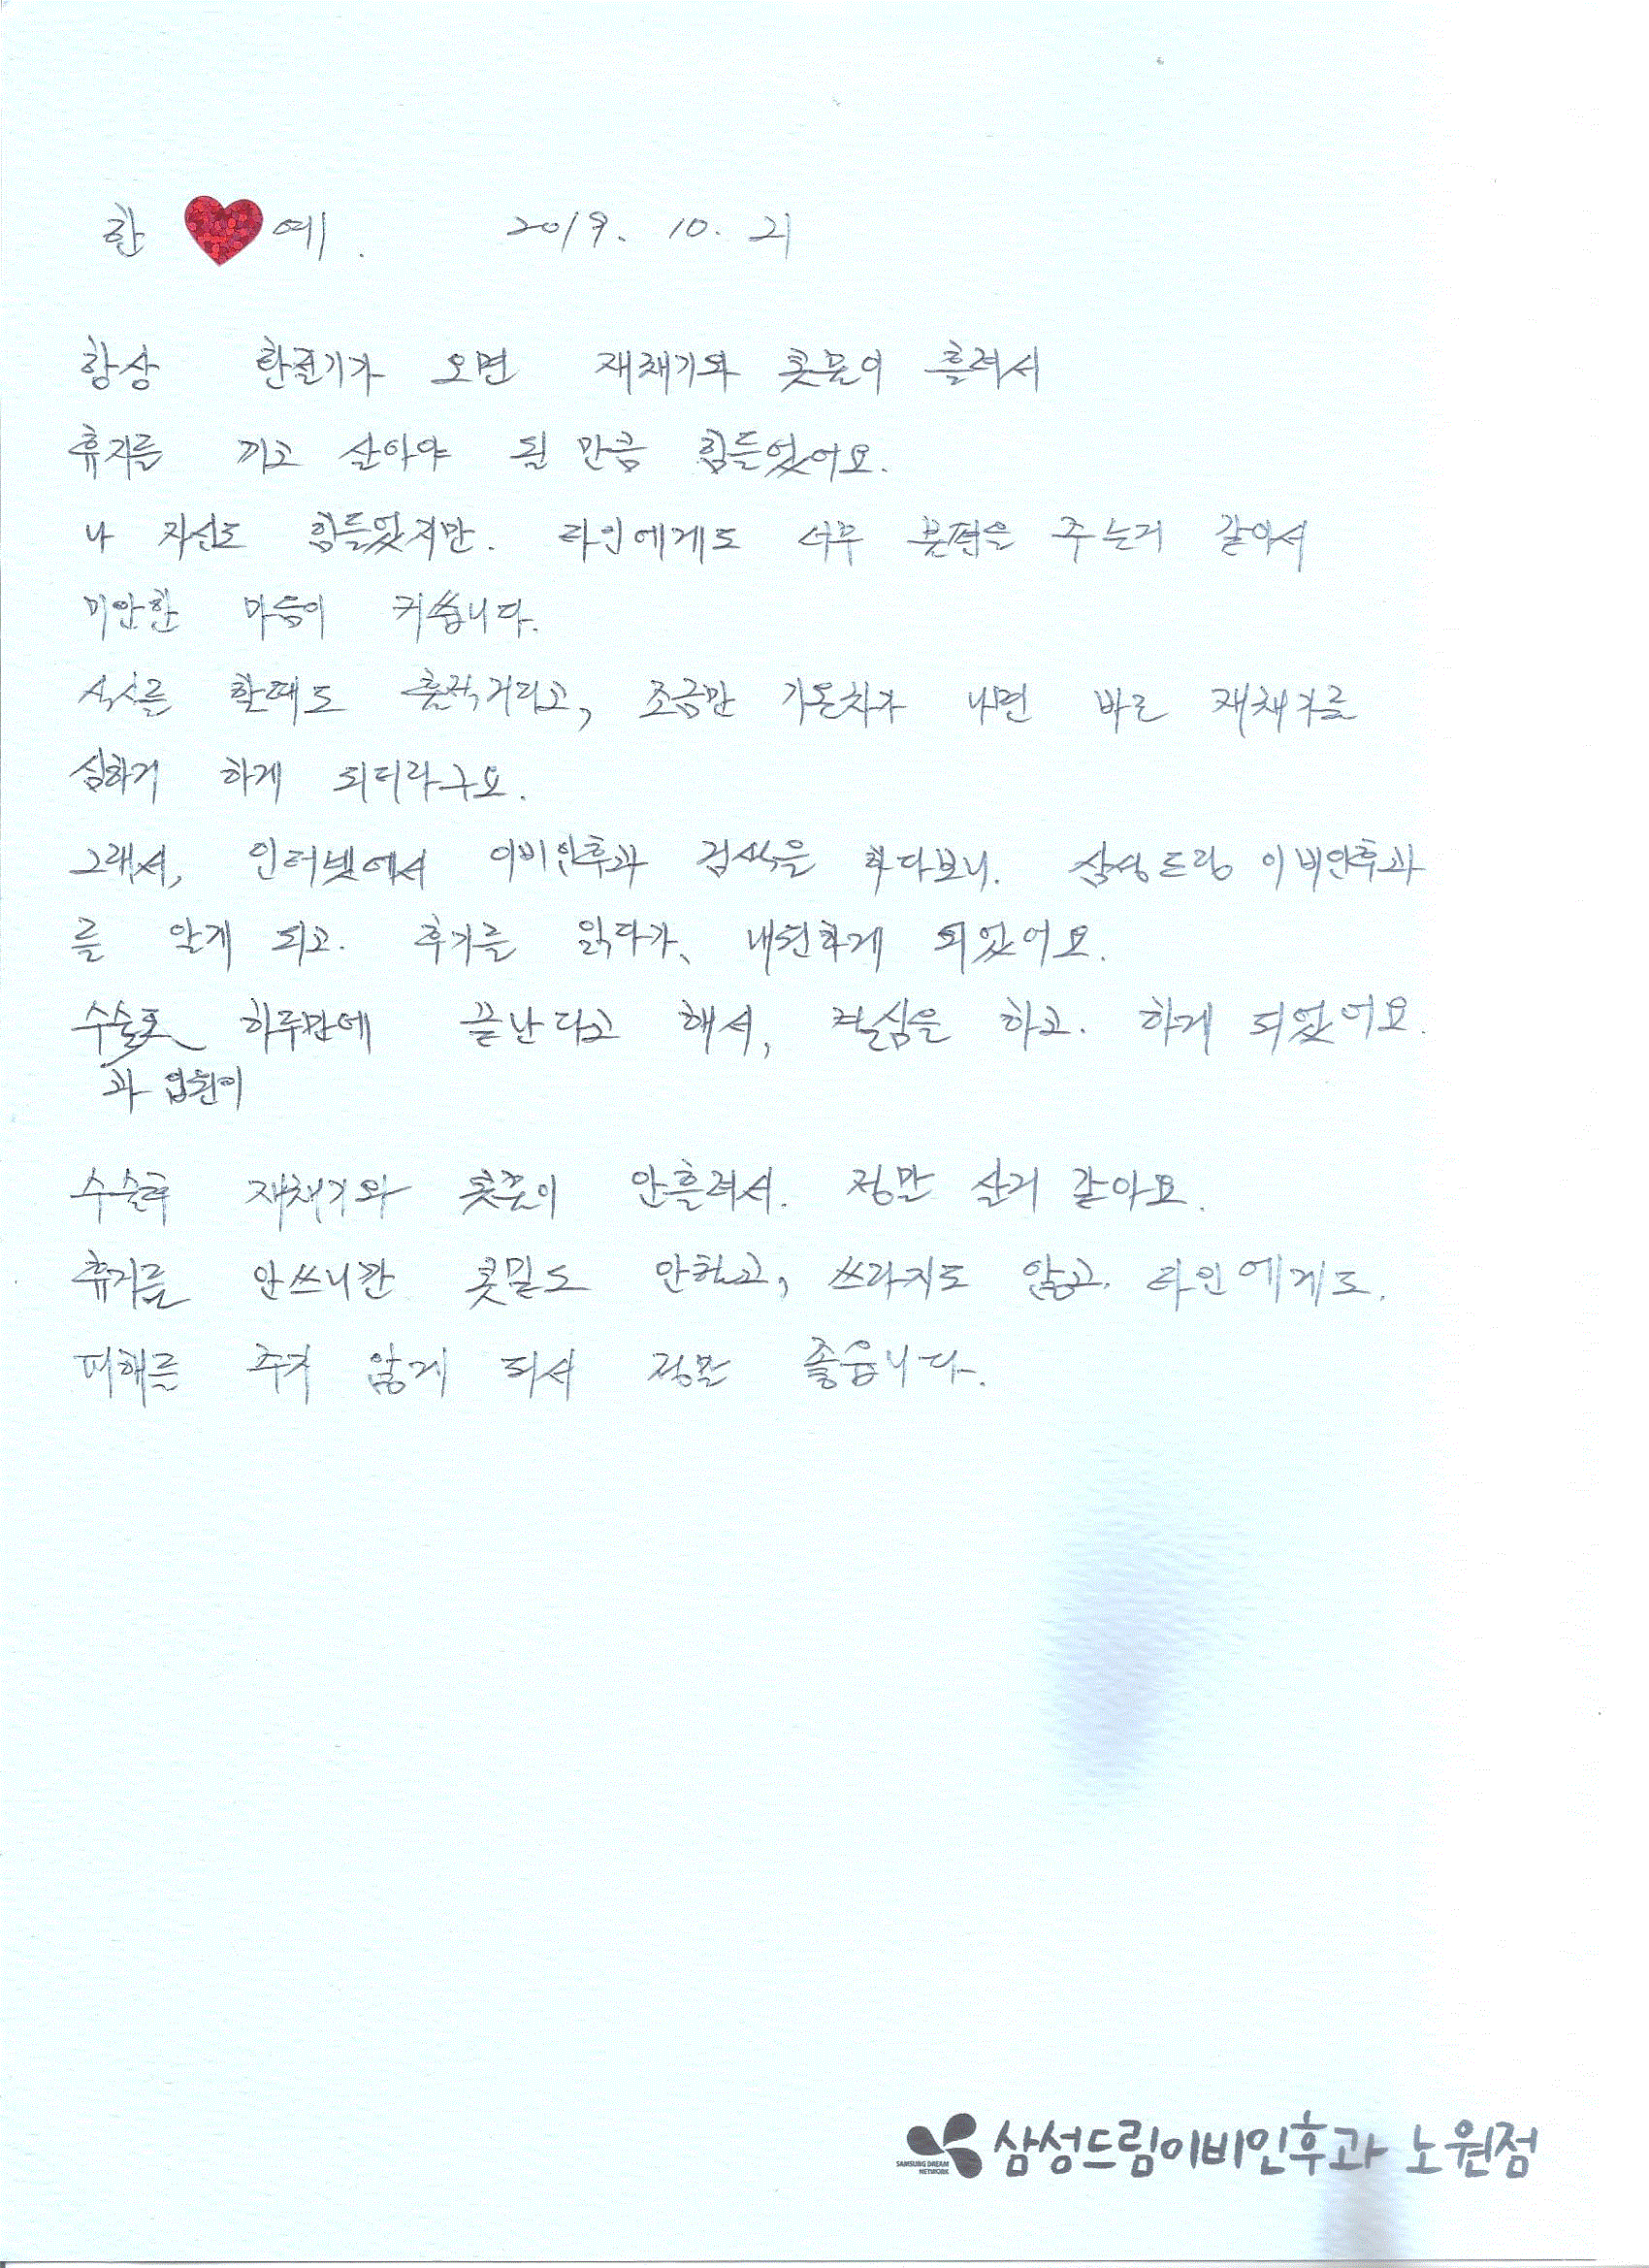 한 예. 2019. 10. 21
항상 환절기가 오면 재채기와 콧물이 흘려서
휴지를 끼고 살아야 될 만큼 힘들었어요.
나 자신도 힘들었지만. 타인에게도 너무 불편을 주는거 같아서
미안한 마음이 커씁니다.
식사를 할때도 훌쩍거리고, 조금만 기온차가 나면 바로 재채기를
심하게 하게 되더라구요.
그래서, 인터넷에서 이비인후과 검색을 하다보니. 삼성드림 이비인후과
를 알게 되고. 후기를 읽다가, 내원하게 되었어요.
수술도 하루만에 끝난다고 해서, 결심을 하고. 하게 되었어요.
과 입원이
수술후 재채기와 콧물이 안흘려서. 정말 살거 같아요.
휴지를 안쓰니깐 콧밑도 안헐고, 쓰라지도 않고. 타인에게도.
피해를 주지 않게 되서 정말 좋습니다.
SAMSUNG DREAM NETWORK 삼성드림이비인후과 노원점